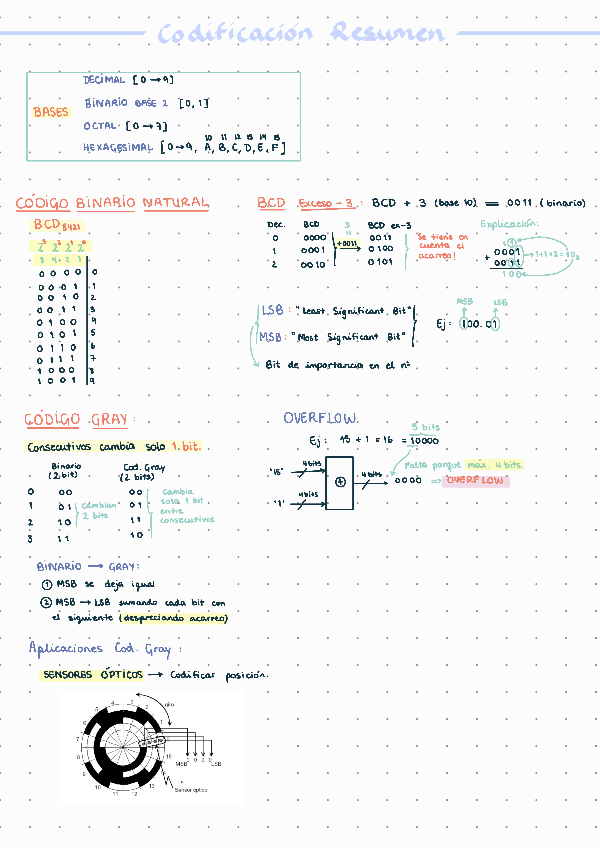 Codificación Resumen
BASES
DECIMAL [0→9]
BINARIO BASE 2 [0,1]
OCTAL [0→7]
10 11 12 13 14 15
HEXAGESIMAL [0→9, A,B,C,D,E,F]
CÓDIGO BINARIO NATURAL
BCD 8421
2³ 2² 2¹ 2⁰
8 4 2 1
0 0 0 0 0
0 0 0 1 1
0 0 1 0 2
0 0 1 1 3
0 1 0 0 4
0 1 0 1 5
0 1 1 0 6
0 1 1 1 7
1 0 0 0 8
1 0 0 1 9
BCD Exceso-3: BCD + 3 (base 10) = 0011 (binario)
Dec. BCD 3 BCD ex-3
0 0000 +0011 0011
1 0001 0100
2 0010 0101
Se tiene en cuenta el acarreo!
Explicación:
1
0001
+ 0011
100
1+1=2=10₂
LSB: "Least Significant Bit"
MSB: "Most Significant Bit"
MSB LSB
Ej: 100.01
Bit de importancia en el nº
CÓDIGO GRAY:
Consecutivos cambia solo 1 bit.
Binario (2 bit) Cod. Gray (2 bits)
0 00 00
1 01 01
2 10 11
3 11 10
cambian 2 bits
Cambia solo 1 bit entre consecutivos
BINARIO → GRAY:
① MSB se deja igual
② MSB → LSB sumando cada bit con
el siguiente (despreciando acarreo)
Aplicaciones Cod. Gray:
SENSORES ÓPTICOS → Codificar posición.
giro
1 2 3 4 5 6 7 8 9 10 11 12 13 15
MSB 0 0 0 0 LSB
Sensor óptico
OVERFLOW.
5 bits
Ej: 15 + 1 = 16 = 10000
"15" 4 bits
"1" 4 bits
+
4 bits
0000 ⇒ OVERFLOW
Falta porque max. 4 bits.